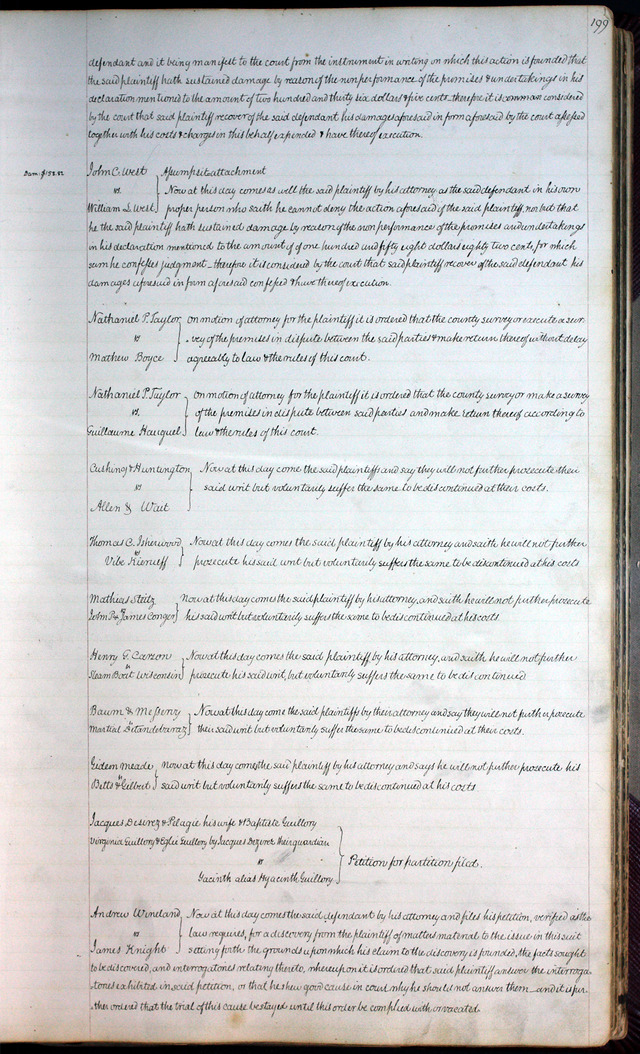 199
defendant and it being manifest to the court from the instrument in writing on which this action is founded that
the said plaintiff hath sustained damage by reason of the nonperformance of the premises & undertakings in his
declaration mentioned to the amount of two hundred and thirty six dollars & five cents_therefore it is considered
by the court that said plaintiff recover of the said defendant his damages aforesaid in form aforesaid by the court assessed
together with his costs & charges in this behalf expended & have thereof execution.
Dam. $158.82
John C. West Assumpsit attachment
vs. Now at this day comes as well the said plaintiff by his attorney as the said defendant in his own
William L. West proper person who saith he cannot deny the action aforesaid of the said plaintiff, nor but that
he the said plaintiff hath sustained damage by reason of the nonperformance of the promises and undertakings
in his declaration mentioned to the amount of of one hundred and fifty eight dollars eighty two cents, for which
sum he confesses judgment_therefore it is considered by the court that said plaintiff recover of the said defendant his
damages aforesaid in form aforesaid confessed & have thereof execution.
Nathaniel P. Taylor on motion of attorney for the plaintiff it is ordered that the county surveyor execute a sur
vs vey of the premises in dispute between the said parties & make return thereof without delay
Mathew Boyce agreeably to law & the rules of this court.
Nathaniel P. Taylor on motion of attorney for the plaintiff it is ordered that the county surveyor make a survey
vs. of the premises in dispute between said parties and make return thereof according to
Guillaume Hauquel law & the rules of this court.
Cushing & Huntington Now at this day come the said plaintiffs and say they will not further prosecute their
vs said writ but voluntarily suffer the same to be discontinued at their costs.
Allen & Wait
Thomas C. Isherwood Now at this day comes the said plaintiff by his attorney and saith he will not further
vs
Vibe Kierulff prosecute his said writ but voluntarily suffers the same to be discontinued at his costs
Mathias Steitz Now at this day comes the said plaintiff by his attorney, and saith he will not further prosecute
vs
John P. & James Conger his said writ but voluntarily suffers the same to be discontinued at his costs.
Henry G. Carson Now at this day comes the said plaintiff by his attorney, and saith he will not further
vs
Steam Boat Wisconsin prosecute his said writ, but voluntarily suffers the same to be discontinued
Baum & Nowat this day come the said plaintiffs by their attorney and say they will not further prosecute
vs
Martial their said writ but voluntarily suffer the same to be discontinued at their costs.
Gideon Meade now at this day comes the said plaintiff by his attorney and says he will not further prosecute his
vs
Betts & Gilbert said writ but voluntarily suffers the same to be discontinued at his costs.
Jacques Desirez & Pelagie his wife & Baptiste Guillory
Virginia Guillory & Eglie Guillory by Jacques Dezirez their guardian
vs Petition for partition filed.
Yacinth alias Hyacinth Guillory
Andrew Wineland Now at this day comes the said defendant by his attorney and files his petition, verified as the
vs law requires, for a discovery from the plaintiff of matters material to the issue in this suit
James Knight setting forth the grounds upon which his claim to the discovery is founded, the facts sought
to be discovered, and interrogatories relating thereto, whereupon it is ordered that said plaintiff answer the interroga
tories exhibited in said petition, or that he shew good cause in court why he should not answer them_and it is fur
ther ordered that the trial of this cause be stayed until this order be complied with or vacated